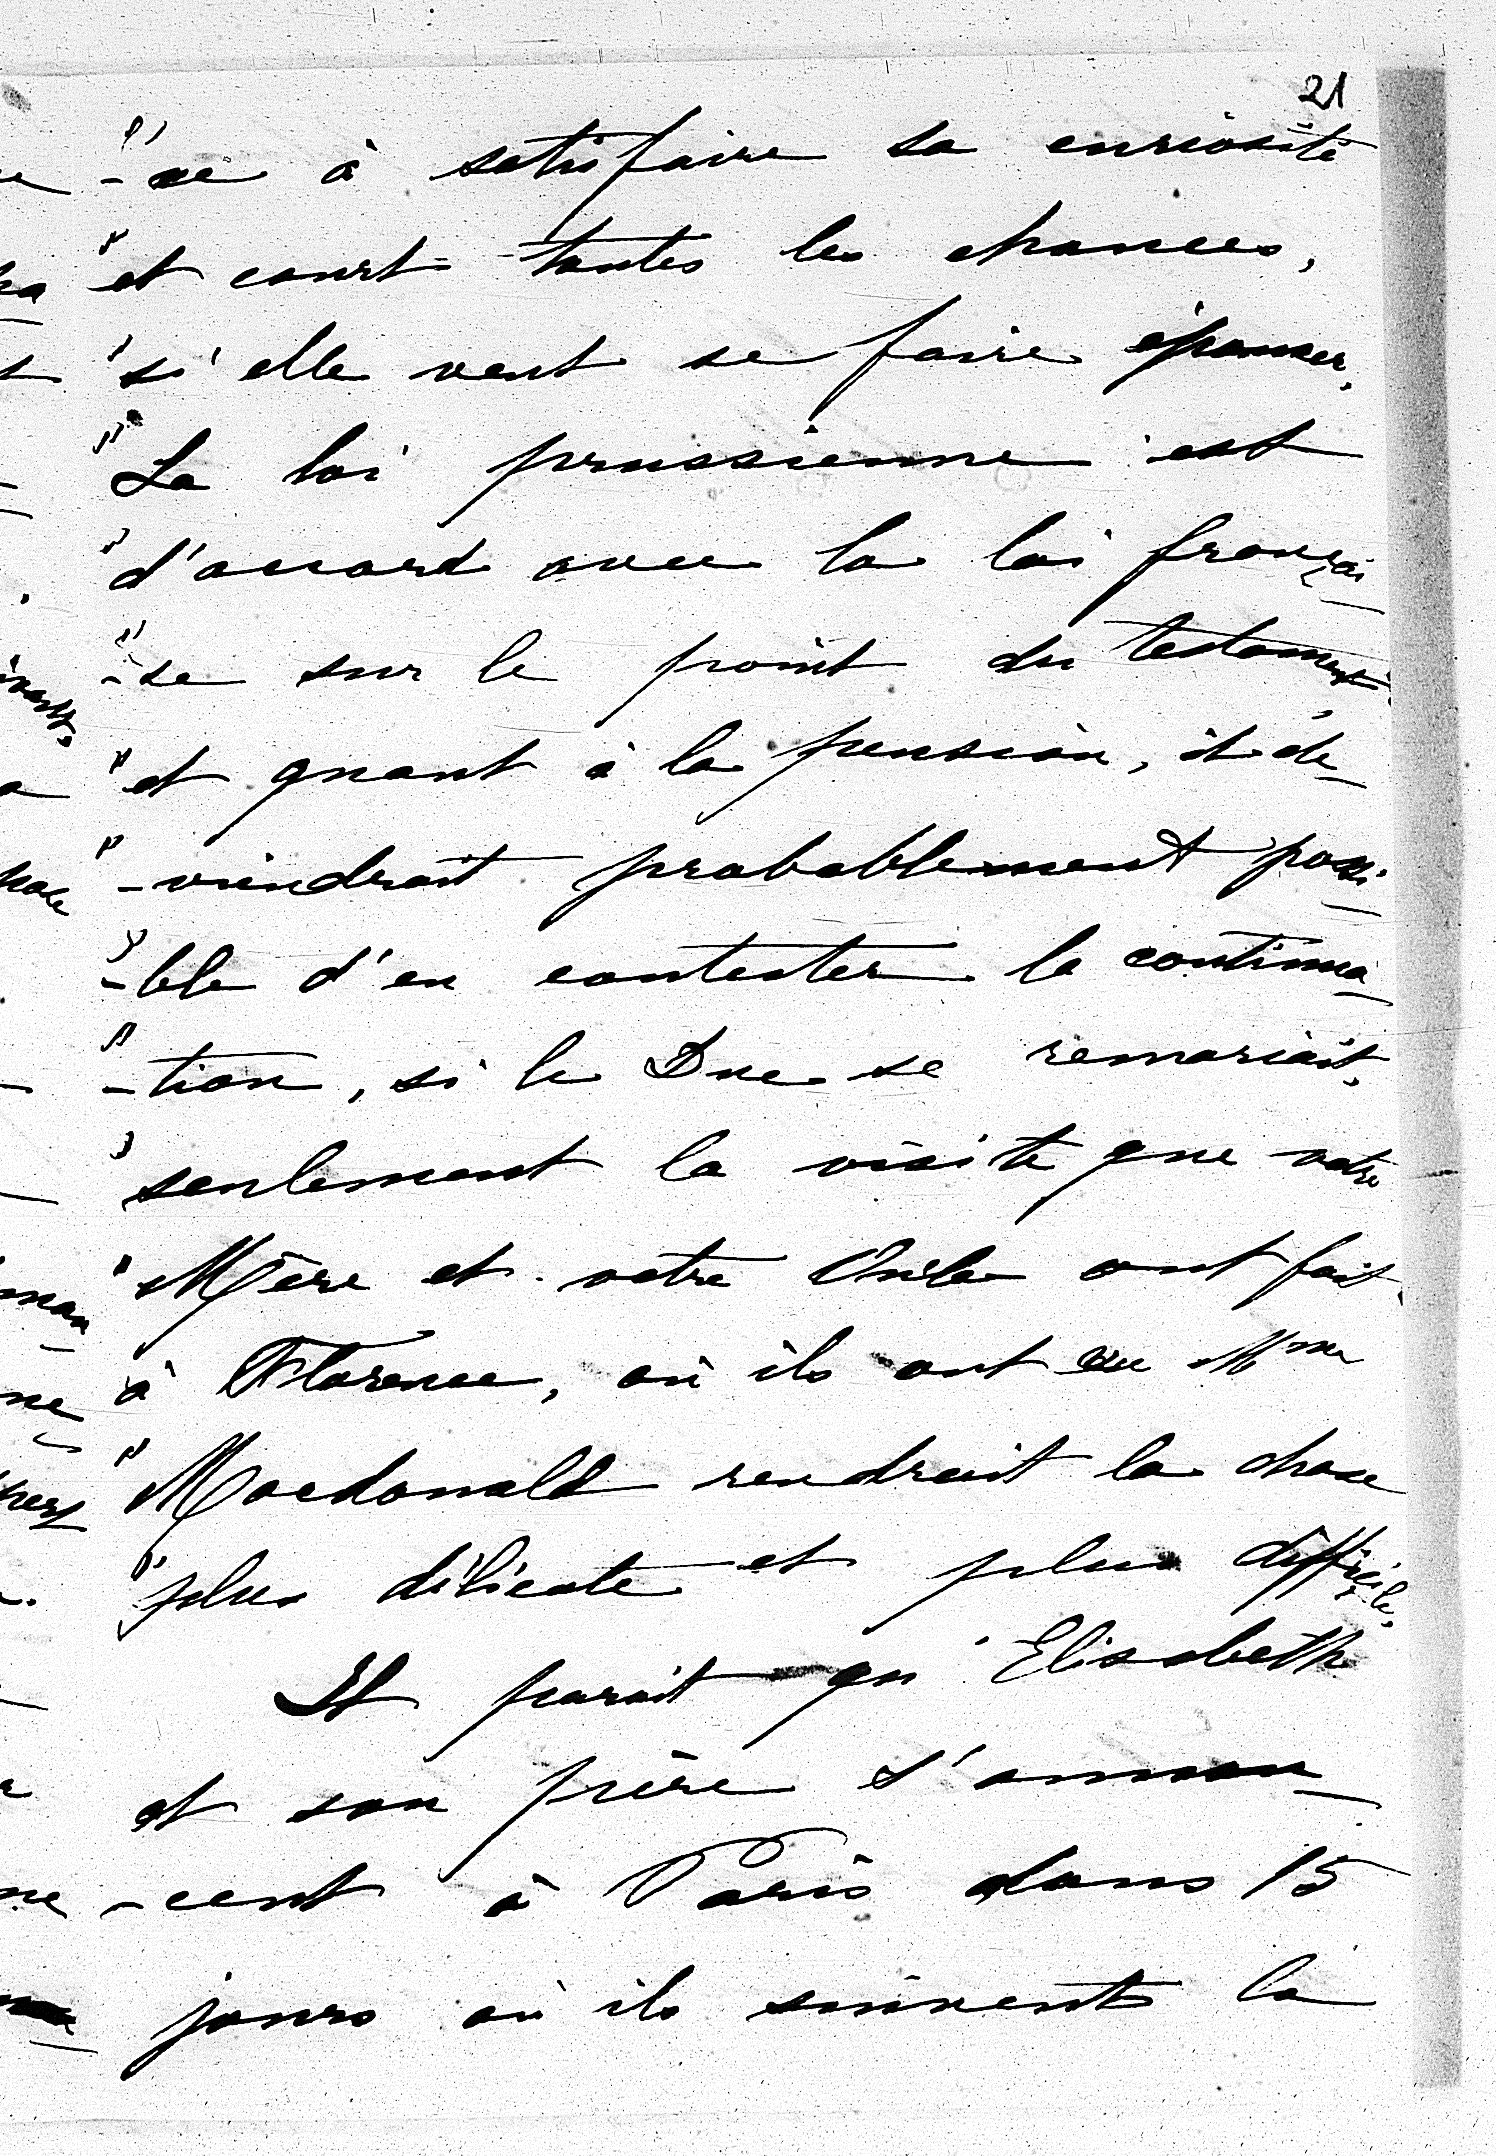 21
"-sé à satisfaire sa curiosité
"et court toutes les chances,
"si elle veut se faire épouser,
"La loi prussienne est
"d'accord avec la loi françai-
"-se sur le point du testament,
"et quant à la pension, il de-
"-viendrait probablement possi-
"-ble d'en contester la continua-
"-tion, si le Duc se remariait,
"seulement la visite que votre
"Mère et votre Oncle ont fait
à Florence, où ils ont vu Mme
"Macdonald rendrait la chose
"plus délicate et plus difficile,
Il parait qu'Elisabeth
et son frère s'annon-
-cent à Paris dans 15
jours où ils suivent la